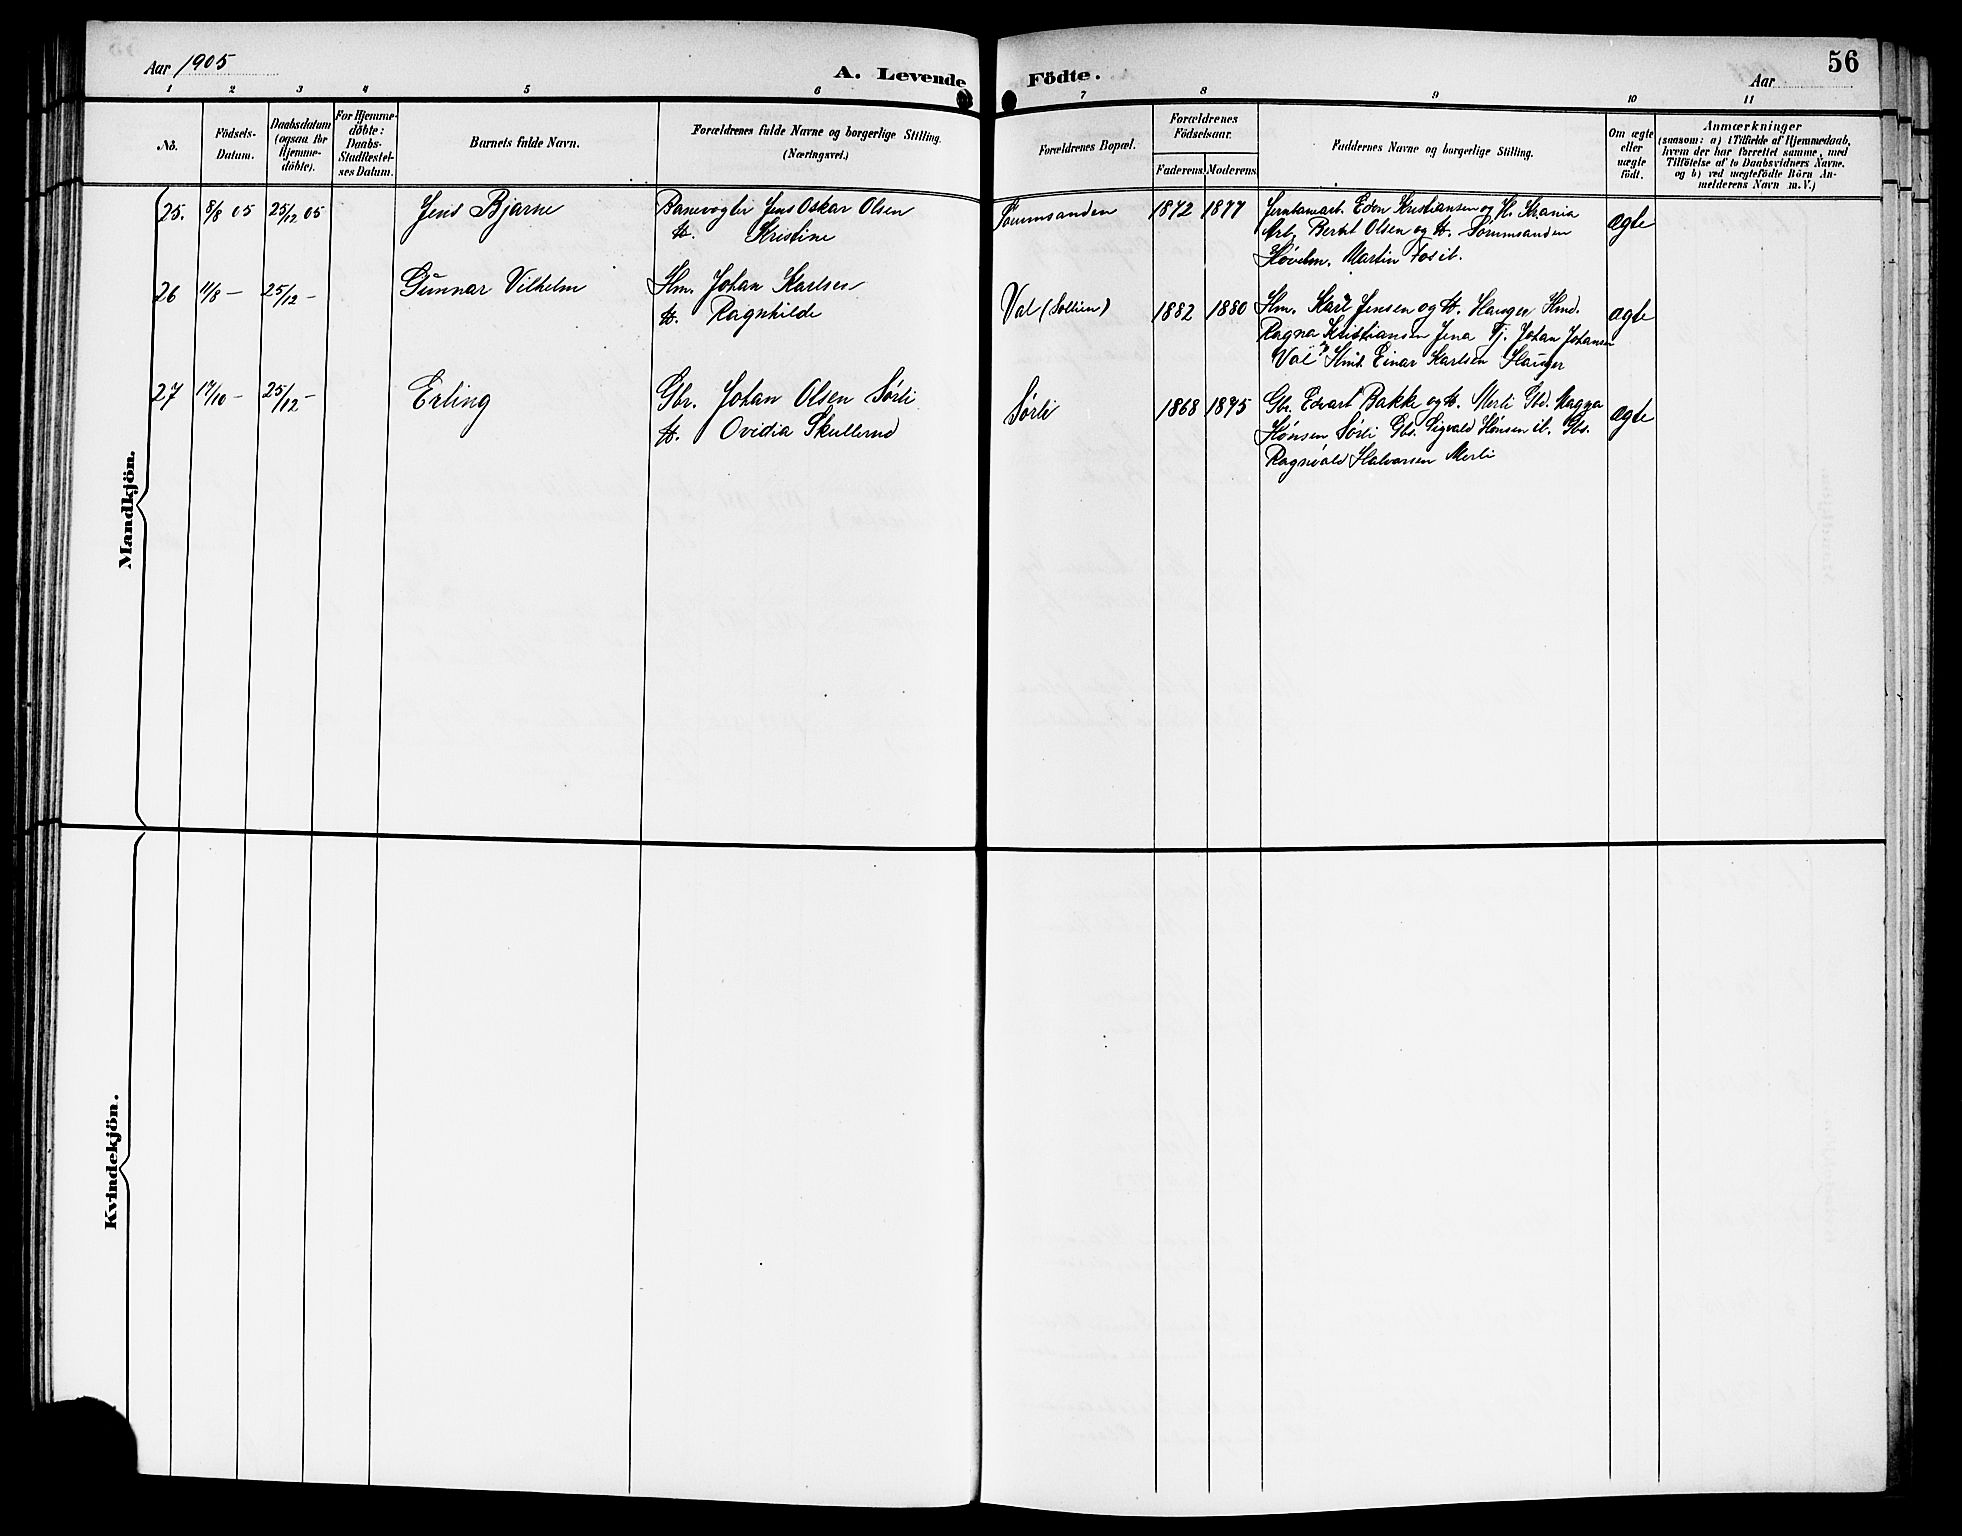 56
Aar 1905
A. Levende Födte.
Aar
1 2 3 4 5 6 7 8 9 10 11
No.
Födsels-
Datum.
Daabsdatum
(ogsaa for
Hjemme-
døbte).
For Hjemme-
døbte:
Daabs-
Stadfæstel-
ses Datum.
Barnets fulde Navn.
Forældrenes fulde Navne og borgerlige Stilling.
(Næringsvei.)
Forældrenes Bopæl.
Forældrenes
Födselsaar.
Faderens. Moderens.
Faddernes Navne og borgerlige Stilling.
Om ægte
eller
uægte
født.
Anmærkninger
(saasom: a) i Tilfælde af Hjemmedaab,
hvem der har forrettet samme, med
Tilföielse af to Daabsvidners Navne.
og b) ved uægtefödte Börn An-
melderens Navn m. V.)
Mandkjön.
25. 8/8 05 25/12 05 Jens Bjarne Banevogter Jens Oskar Olsen
H. Kristine
Sommsanden 1872 1877 Kristiansen og H. Krania
Arb. Bertel Olsen og H. Sommsanden
Martin Fos it.
ægte
26 11/8 - 25/12 - Gunnar Vilhelm Hm. Johan Karlsen
H. Ragnhilde
Val (Sollien) 1882 1880 Hm. Karl Jensen og H. Hauger
Ragna Kristiansen Tj. Johan Johansen
Val Einar Karlsen Hauger
ægte
27 17/10 - 25/12 - Erling Gbr. Johan Olsen Sørli
H. Ovidia Skullerud
Sørli 1868 1875 Gb. Edvart Bakke og H. Merli Gbd. Magna
Hønsen Sørli Gbs. Sigvald Hønsen it. Gbs.
Ragnvald Halvorsen Merli
ægte
Kvindekjön.